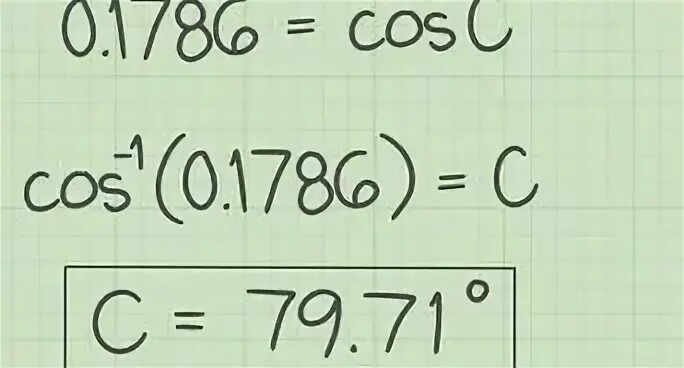 0.1786 = cos C
cos⁻¹(0.1786) = C
C = 79.71°